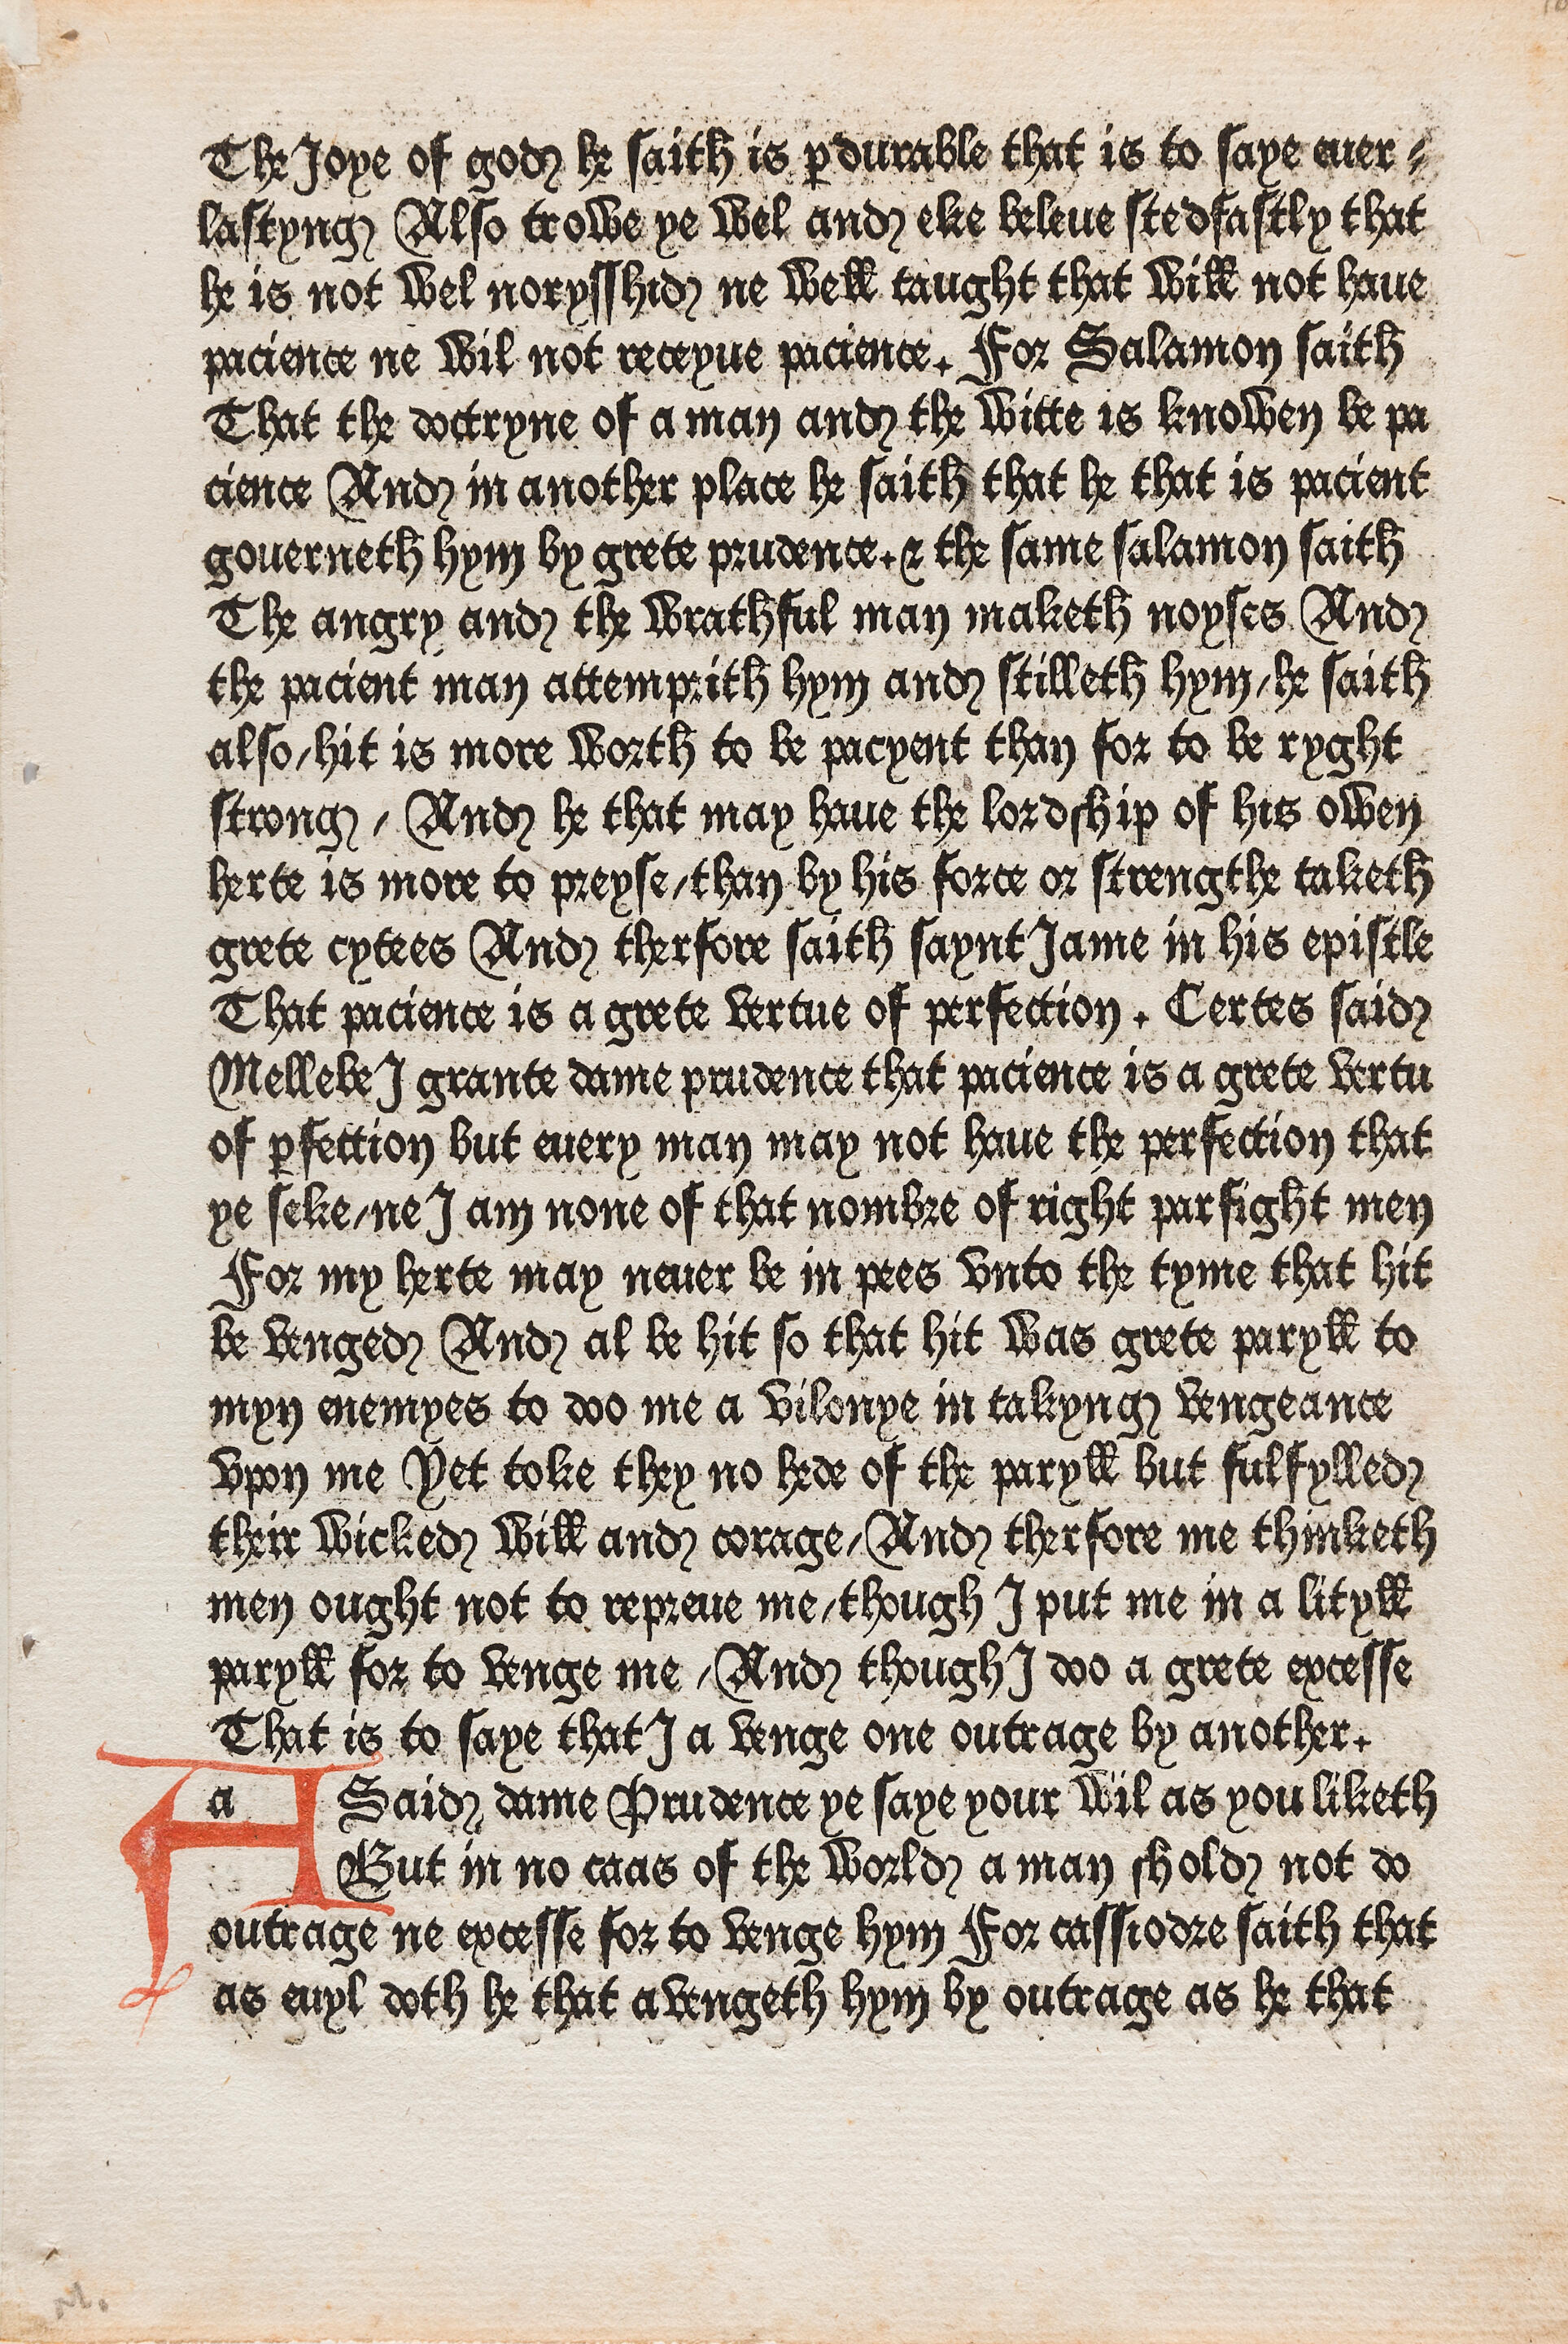 The Joye of god he saith is ꝑdurable that is to saye euer⸗
lastyng Also trowe ye wel and eke beleue stedfastly that
he is not wel norysshid ne well taught that will not haue
pacience ne wil not receyue pacience. For Salamon saith
That the doctryne of a man and the witte is knowen be pa
cience And in another place he saith that he that is pacient
gouerneth hym by grete prudence. & the same salamon saith
The angry and the wrathful man maketh noyses And
the pacient man attemprith hym and stilleth hym/ he saith
also/ hit is more worth to be pacyent than for to be ryght
strong / And he that may haue the lordship of his owen
herte is more to preyse/ than by his force or strengthe taketh
grete cytees And therfore saith saynt Jame in his epistle
That pacience is a grete vertue of perfection. Certes said
Mellebe J grante dame prudence that pacience is a grete vertu
of ꝑfection but euery man may not haue the perfection that
ye seke/ ne J am none of that nombre of right parfight men
For my herte may neuer be in pees vnto the tyme that hit
be venged And al be hit so that hit was grete paryll to
myn enemyes to doo me a vilonye in takyng vengeance
vpon me Yet toke they no hede of the paryll but fulfylled
their wicked will and corage/ And therfore me thinketh
men ought not to repreue me/ though J put me in a lityll
paryll for to venge me / And though J doo a grete excesse
That is to saye that J a venge one outrage by another.
A a Said dame Prudence ye saye your wil as you liketh
But in no caas of the world a man shold not do
outrage ne excesse for to venge hym For cassiodre saith that
as euyl doth he that avengeth hym by outrage as he that